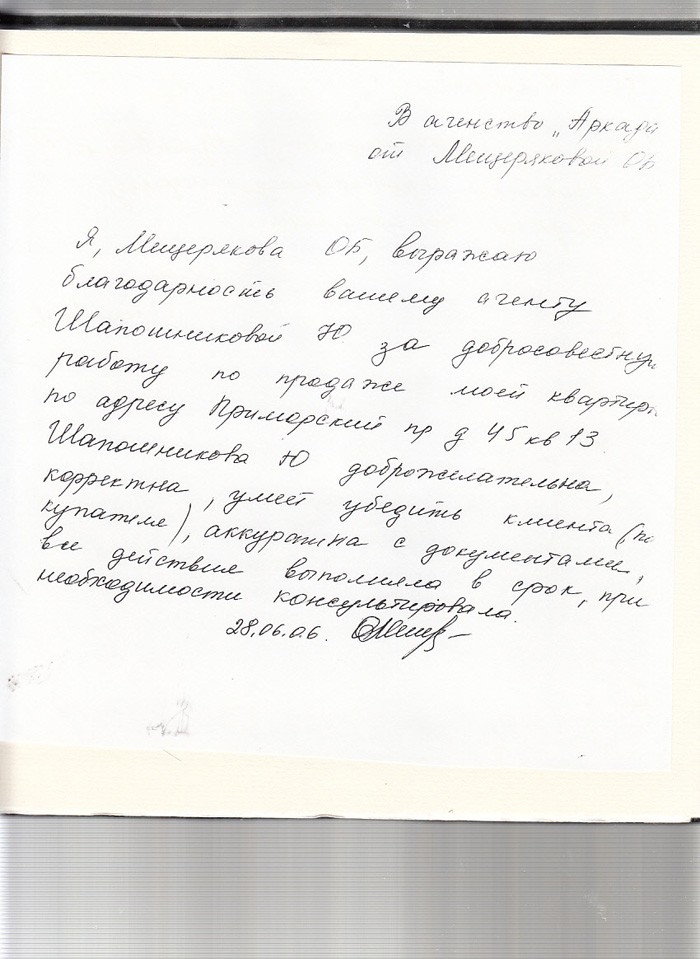 В агенство „Аркади
от Мещеряковой ОБ
Я, Мещерякова ОБ, выражаю
благодарность вашему агенту
Шапошниковой Ю за добросовестную
работу по продаже моей квартиры
по адресу Приморский пр д 45 кв 13
Шапошникова Ю доброжелательна,
корректна, умеет убедить клиента (по
купателя), аккуратна с документами,
все действия выполняла в срок, при
необходимости консультировала.
28.06.06.